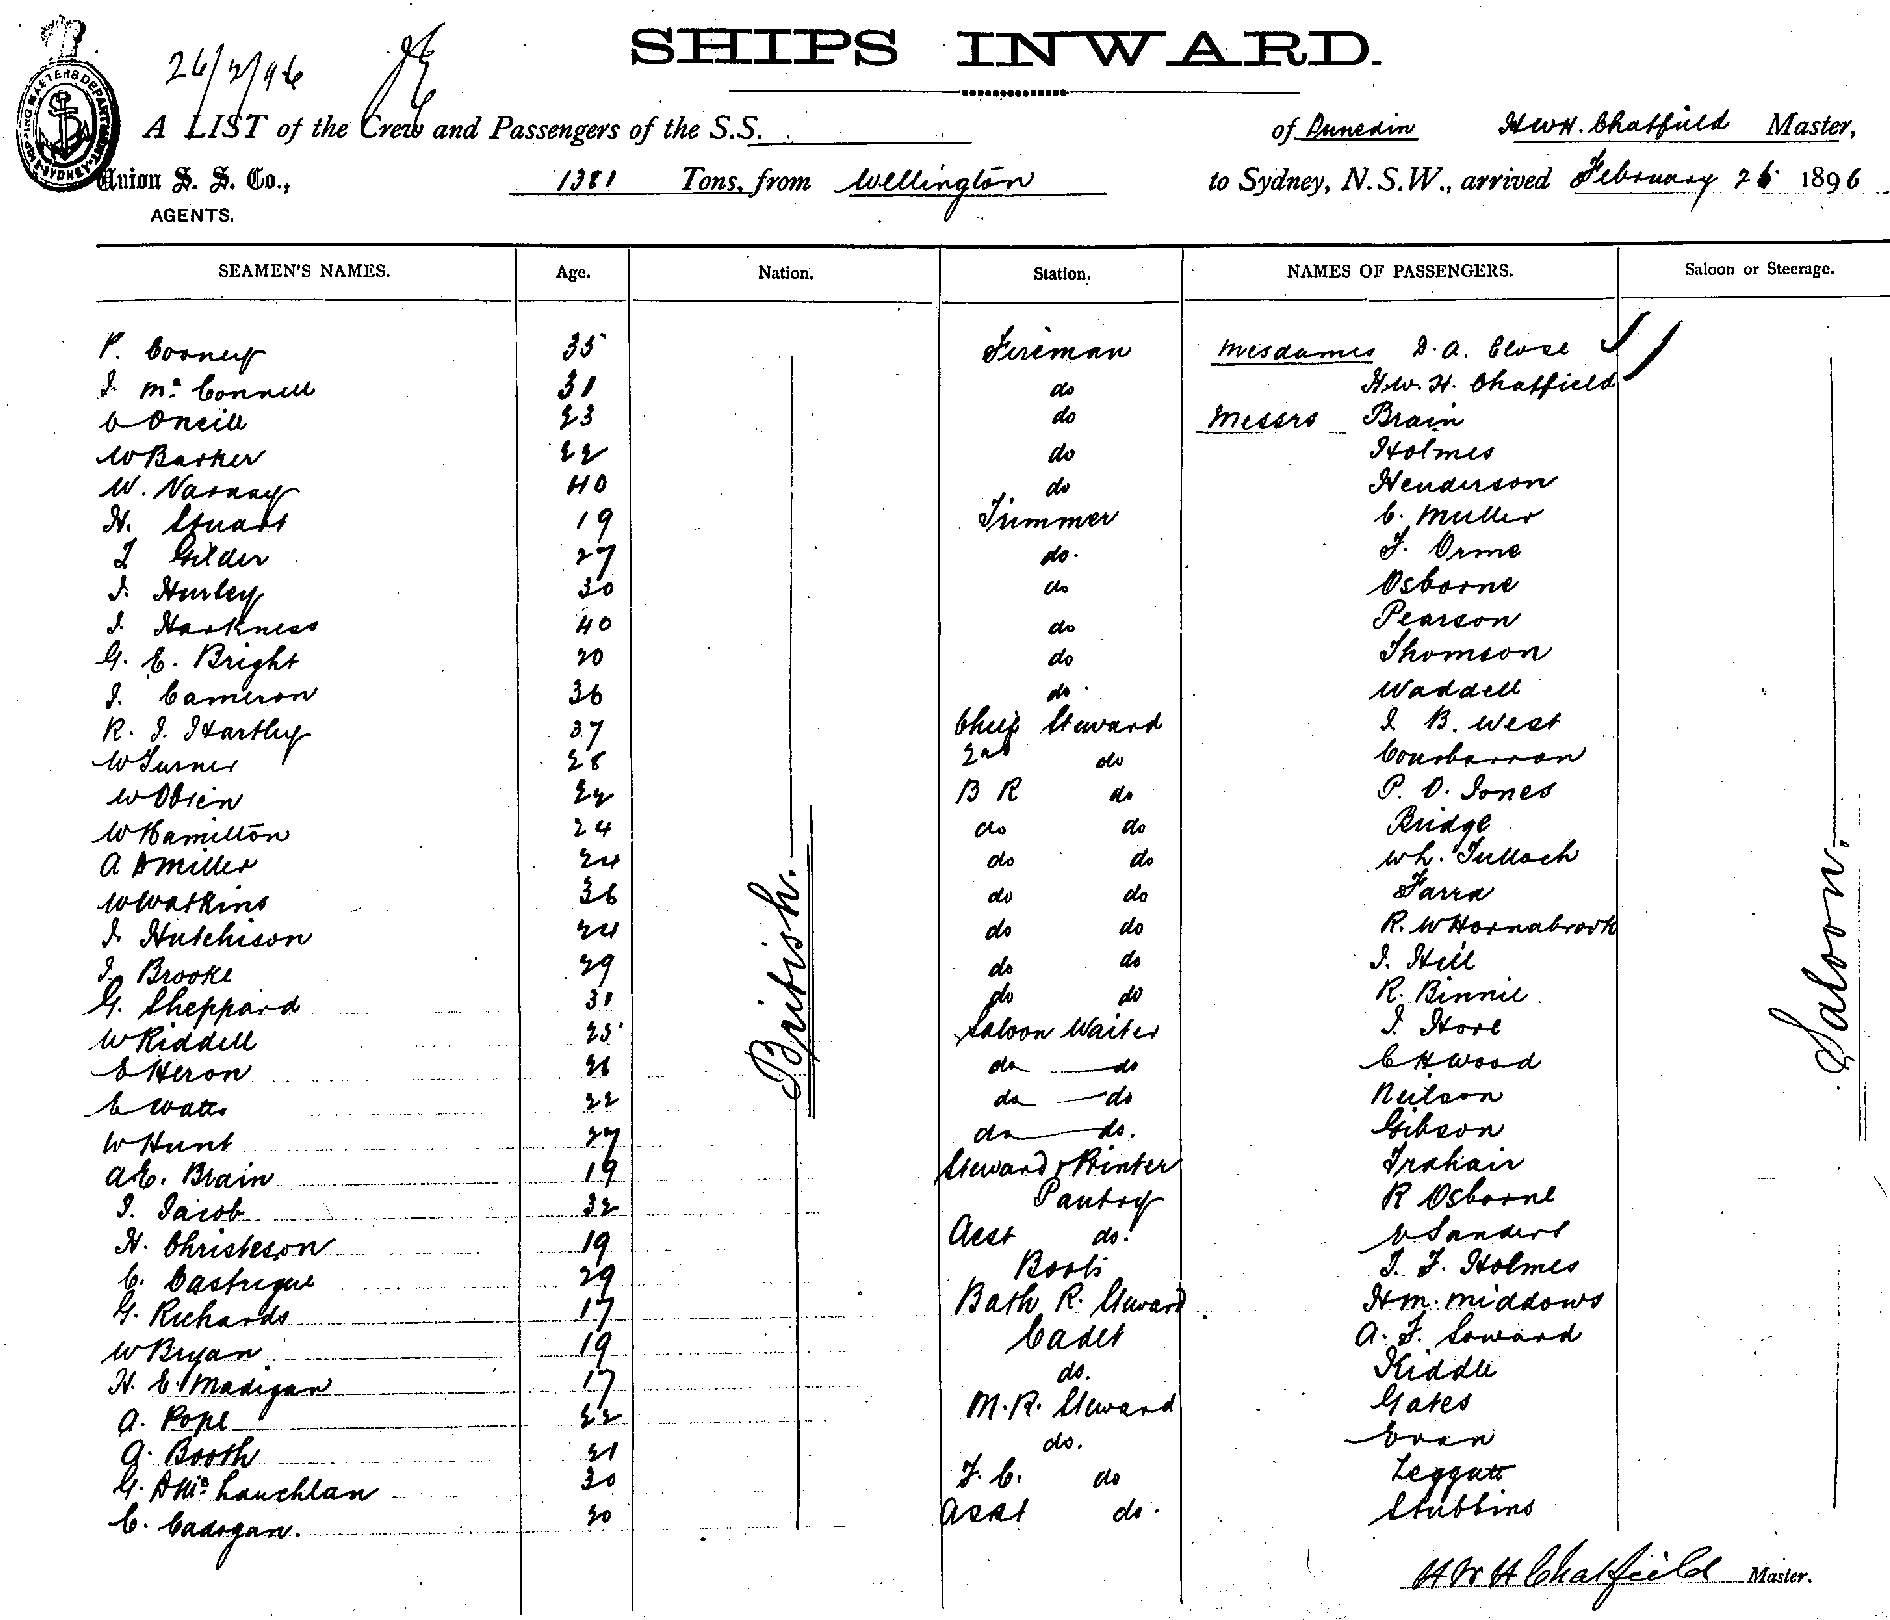 SHIPS INWARD.
26/2/96
A LIST of the Crew and Passengers of the S.S. of Dunedin H W H. Chatfield Master,
Union S. S. Co., 1381 Tons, from Wellington to Sydney, N.S.W., arrived February 26 1896
AGENTS.
SEAMEN'S NAMES. Age. Nation. Station. NAMES OF PASSENGERS. Saloon or Steerage.
P. Cooney 35 Fireman Mesdames D. A. Close
J. Mc Connell 31 do H. W. H. Chatfield
O Oneill 23 do Messrs Brain
W Barker 22 do Holmes
W. Varnay 40 do Henderson
H. Stuart 19 Trimmer C. Muller
J Gilder 27 do. J. Orme
J. Hurley 30 do Osborne
J. Harkness 40 do Pearson
G. E. Bright 20 do Thomson
J. Cameron 36 do Waddell
R. J. Hartley 37 Chief Steward J. B. West
W Turner 28 2nd do
W Obrien 22 B R do P. O. Jones
W Hamilton 24 do do Bridge
A D Miller 24 do do Wh. Tulloch
W Watkins 36 do do Farra
J. Hutchison 24 do do R. W Hornabrook
J. Brooke 29 do do J. Hill
G. Sheppard 31 do do R. Binnie
W Riddell 25 Saloon Waiter J. Hore
C Heron 21 do do C H Wood
C Watts 22 do do Neilson
W Hunt 27 do do. Gibson
A. E. Brain 19 Steward & Printer Trahair
J. Jacob 32 Pantry R Osborne
H. Christeson 19 Asst do. V Sanders
C. Castrique 29 Boots J. F. Holmes
G. Richards 17 Bath R. Steward H. M. Middows
W Bryan 19 Cadet A. F. Soward
H. E. Madigan 17 do. Kiddle
A. Pope 22 M. R. Steward Gates
A. Booth 21 do. Evan
G. A Mc Lauchlan 30 F. C. do Leggatt
C. Cadogan. 20 Asst do. Stubbins
British.
Saloon.
H W H Chatfield Master.